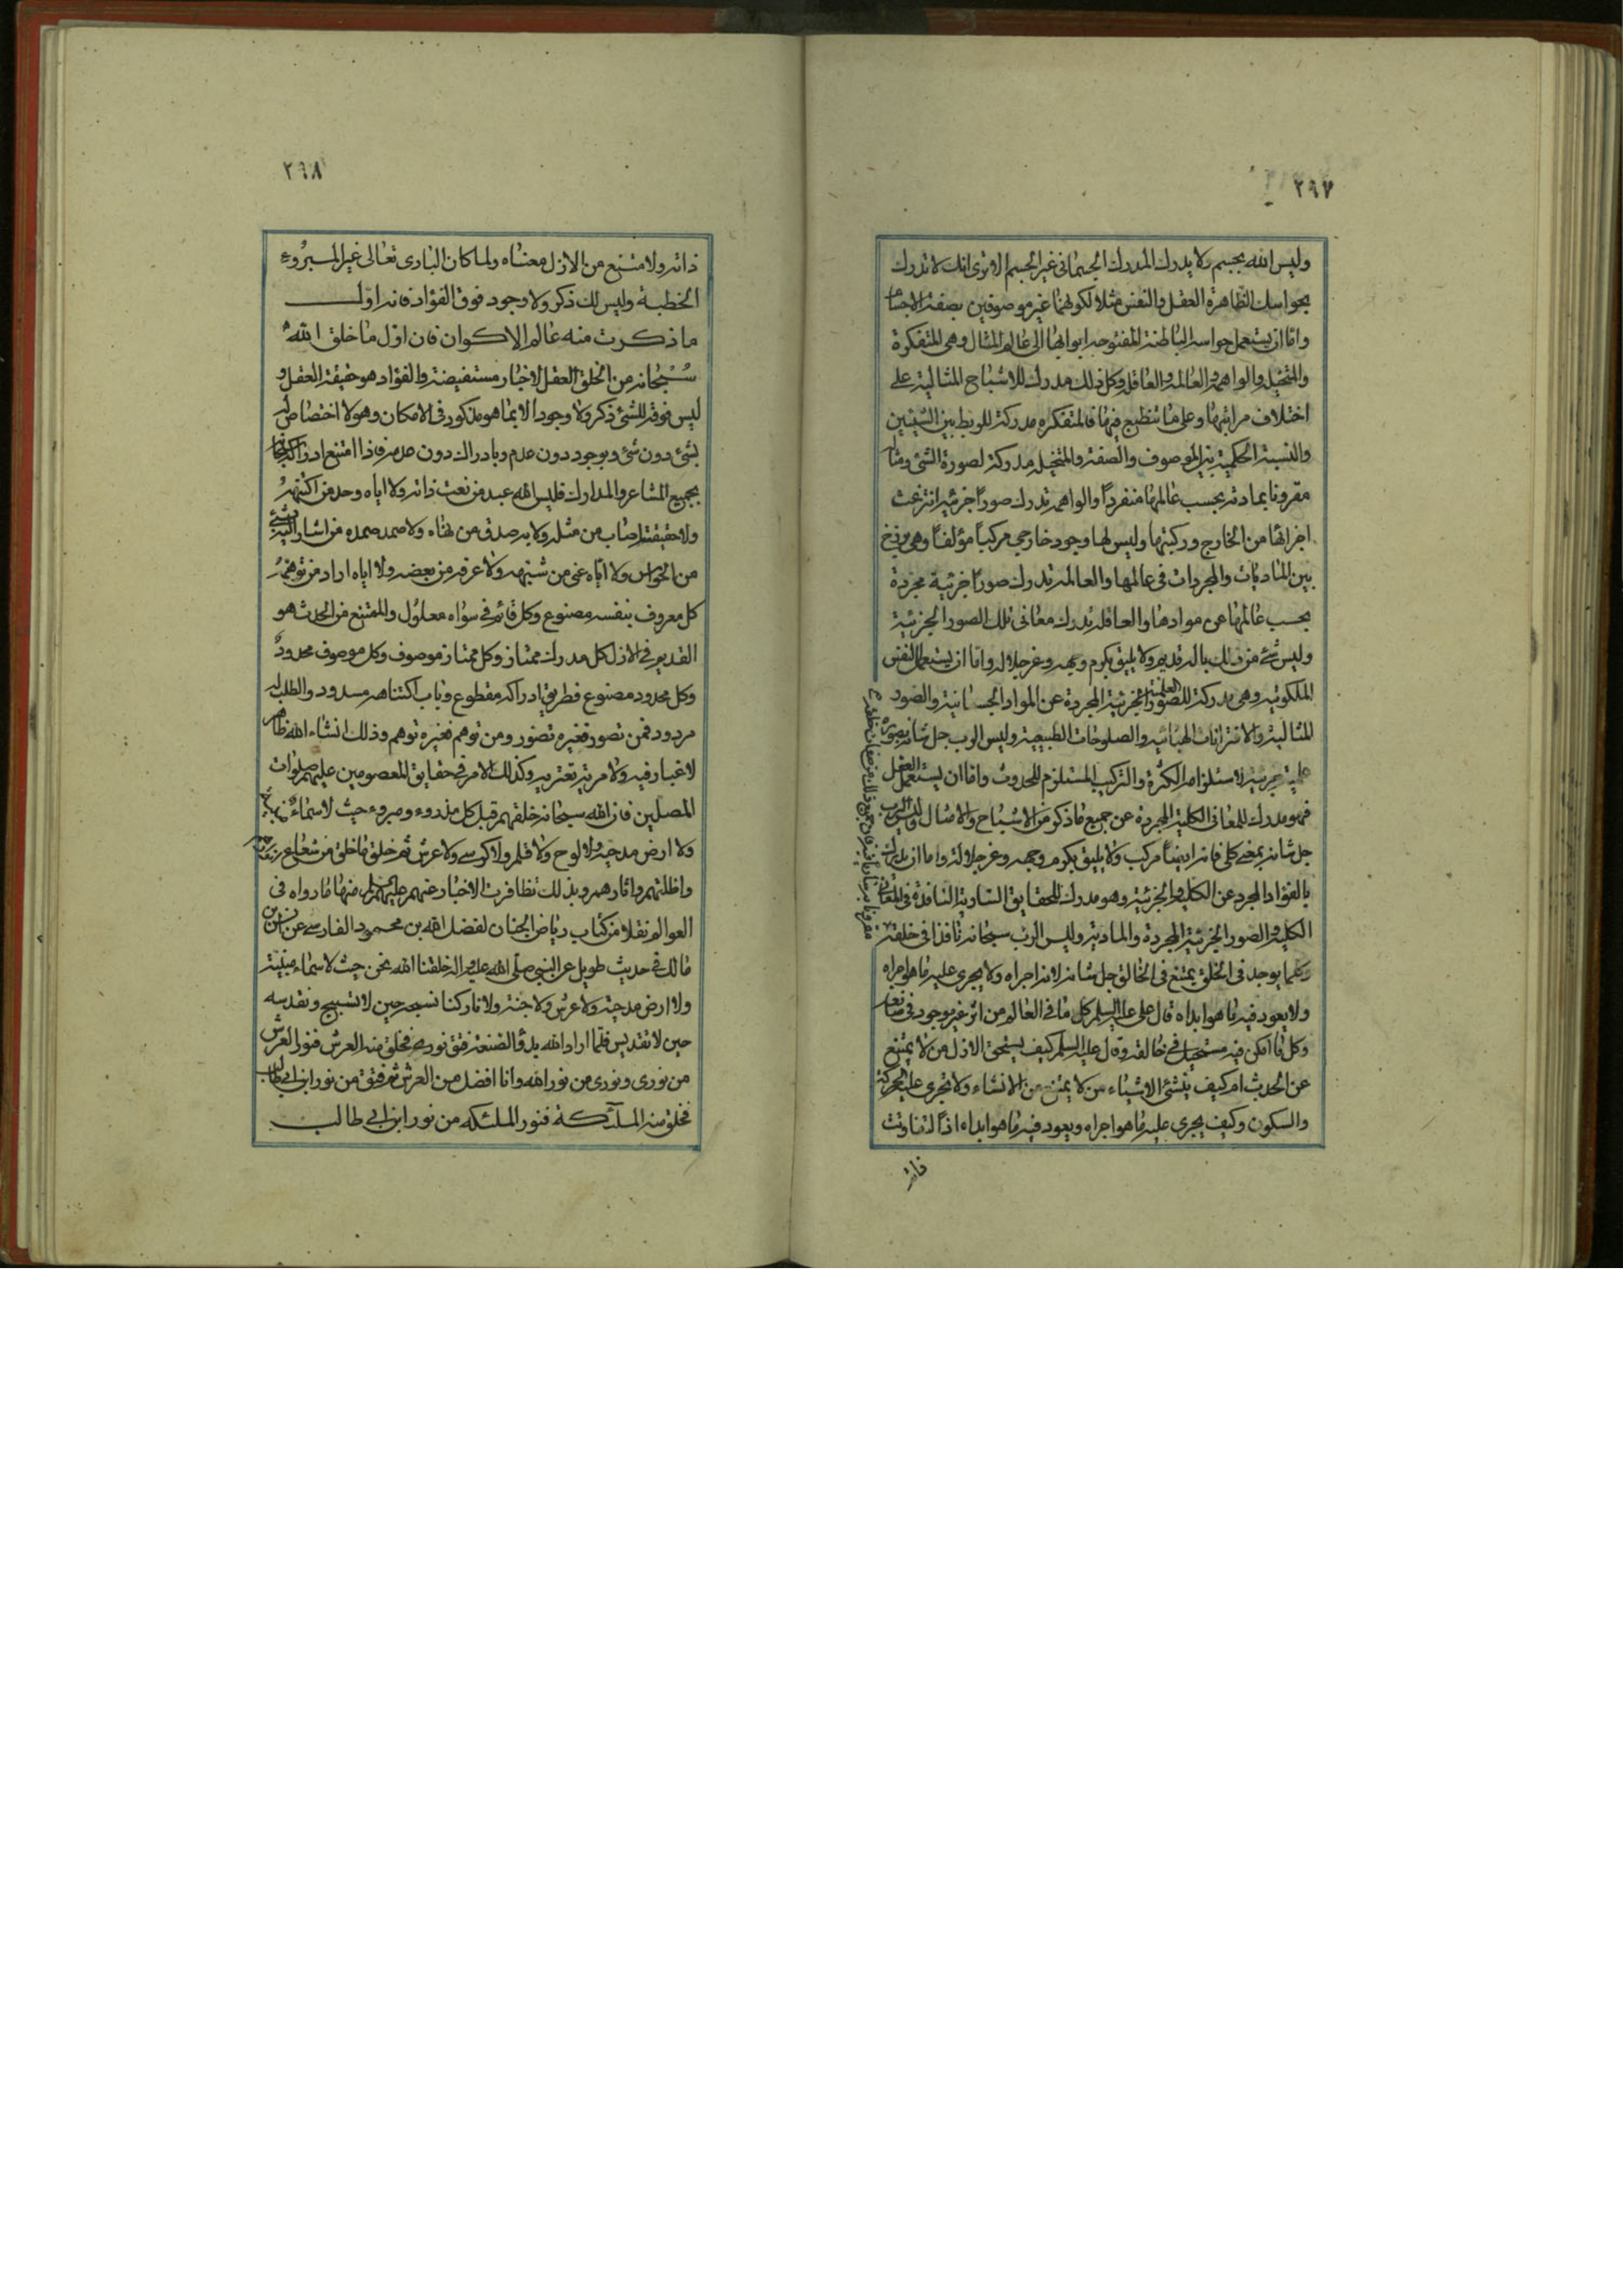 ٢٩٧
وليس الله بجسم ولا يدرك المدرك الجسماني غير الجسم الا ترى انك لا تدرك
بحواسك الظاهرة العقل والنفس مثلا لكونهما غير موصوفين بصفة الاجسام
واما ان يستعمل حواسه الباطنة المفتوحه ابوابها الى عالم المثال وهى المتفكرة
والمتخيله والواهمة والعالمه والعاقله وكل ذلك مدرك للاشباح المثالية على
اختلاف مراتبها وعلى ما تنطبع فيها فالمتفكره مدركة للربط بين الشيئين
والنسبة الحكمية بين الموصوف والصفة والمتخيله مدركة لصورة الشئ ومثاله
مقرونا بمادته بحسب عالمها منفردا والواهمه تدرك صورا جزئيه انتزعت
اجزائها من الخارج وركبتها وليس لها وجود خارجى مركبا مؤلفا وهى برزخ
بين الماديات والمجردات فى عالمها والعالمه تدرك صورا جزئية مجردة
بحسب عالمها عن موادها والعاقله تدرك معانى تلك الصور الجزئية
وليس شئ من ذلك بالله قديم ولا يليق بكرم وجهه وعز جلاله واما ان يستعمل النفس
الملكوتيه وهى مدركة للصور العلمية الجزئية المجردة عن المواد الجسمانية والصور
المثالية والاقترانات الهبائيه والصلوحات الطبيعية وليس الرب جل شانه بصورة
علمية جزئية لاستلزامه الكثرة والتركيب المستلزم للحدوث واما ان يستعمل العقل
فهو مدرك للمعانى الكلية المجردة عن جميع ما ذكر من الاشباح والامثال وليس الرب
جل شانه بمعنى كلى فانه ايضا مركب ولا يليق بكرم وجهه وعز جلاله واما ان يدرك
بالفؤاد المجرد عن الكلية والجزئية وهو مدرك للحقايق السارية النافذة فى المعانى
الكلية والصور الجزئية المجردة والمادية وليس الرب سبحانه نافذا فى خلقه
وكلما يوجد فى الخلق يمتنع فى الخالق جل شانه لانه اجراه ولا يجرى عليه ما هو اجراه
ولا يعود فيه ما هو ابداه قال على عليه السلم كل ما فى العالم من اثر غير موجود فى صانعه
وكل ما امكن فيه مستحيل فى خالقه وقال عليه السلم كيف يستحق الازل من لا يمتنع
عن الحدث ام كيف ينشئ الاشياء من لا يمتنع من الانشاء ولا تجرى عليه الحركة
والسكون وكيف يجرى عليه ما هو اجراه ويعود فيه ما هو ابداه اذا لتفاوتت
ذاته
٢٩٨
ذاته ولامتنع من الازل معناه ولما كان البارى تعالى غير المبروء
الخطبة وليس لك ذكر ولا وجود فوق الفؤاد فانه اول
ما ذكرت منه عالم الاكوان فان اول ما خلق الله
سبحانه من الخلق العقل الاخبار مستفيضة والفؤاد هو حقيقة العقل و
ليس فوقه للشئ ذكر ولا وجود الا بما هو مذكور فى الامكان وهو لا اختصاص له
بشئ دون شئ وبوجود دون عدم وبادراك دون عدمه فاذا امتنع ادراكه سبحانه
بجميع المشاعر والمدارك فليس الله عبد من نعت ذاته ولا اياه وحد من اكتنهه
ولا حقيقته اصاب من مثله ولا به صدق من نهاه ولا صمد صمده من اشار اليه بشئ
من الحواس ولا اياه عنى من شبهه ولا عرفه من بعضه ولا اياه اراد من توهمه
كل معروف بنفسه مصنوع وكل قائم فى سواه معلول والممتنع من الحدث هو
القديم فى الازل كل مدرك ممتاز وكل ممتاز موصوف وكل موصوف محدود
وكل محدود مصنوع فطريق ادراكه مقطوع وباب اكتناهه مسدود والطلب له
مردود فمن تصور فغيره تصور ومن توهم فغيره توهم وذلك انشاء الله ظاهر
لا غبار فيه ولا مرية تعتريه وكذلك الامر فى حقايق المعصومين عليهم صلوات
المصلين فان الله سبحانه خلقهم قبل كل مذروء ومبروء حيث لا سماء مبنية
ولا ارض مدحية ولا لوح ولا قلم ولا كرسى ولا عرش ثم خلق ما خلق من شعاع
واظلتهم واثارهم وبذلك تظافرت الاخبار عنهم عليهم السلم منها ما رواه فى
العوالم نقلا من كتاب رياض الجنان لفضل الله بن محمود الفارسى عن انس بن
مالك فى حديث طويل عن النبى صلى الله عليه واله خلقنا الله نحن حيث لا سماء مبنية
ولا ارض مدحية ولا عرش ولا جنة ولا نار كنا نسبحه حين لا تسبيح ونقدسه
حين لا تقديس فلما اراد الله بدؤ الصنعة فتق نورى فخلق منه العرش فنور العرش
من نورى ونورى من نور الله وانا افضل من العرش ثم فتق من نور ابن ابى طالب
فخلق منه الملائكة فنور الملئكه من نور ابن ابى طالب